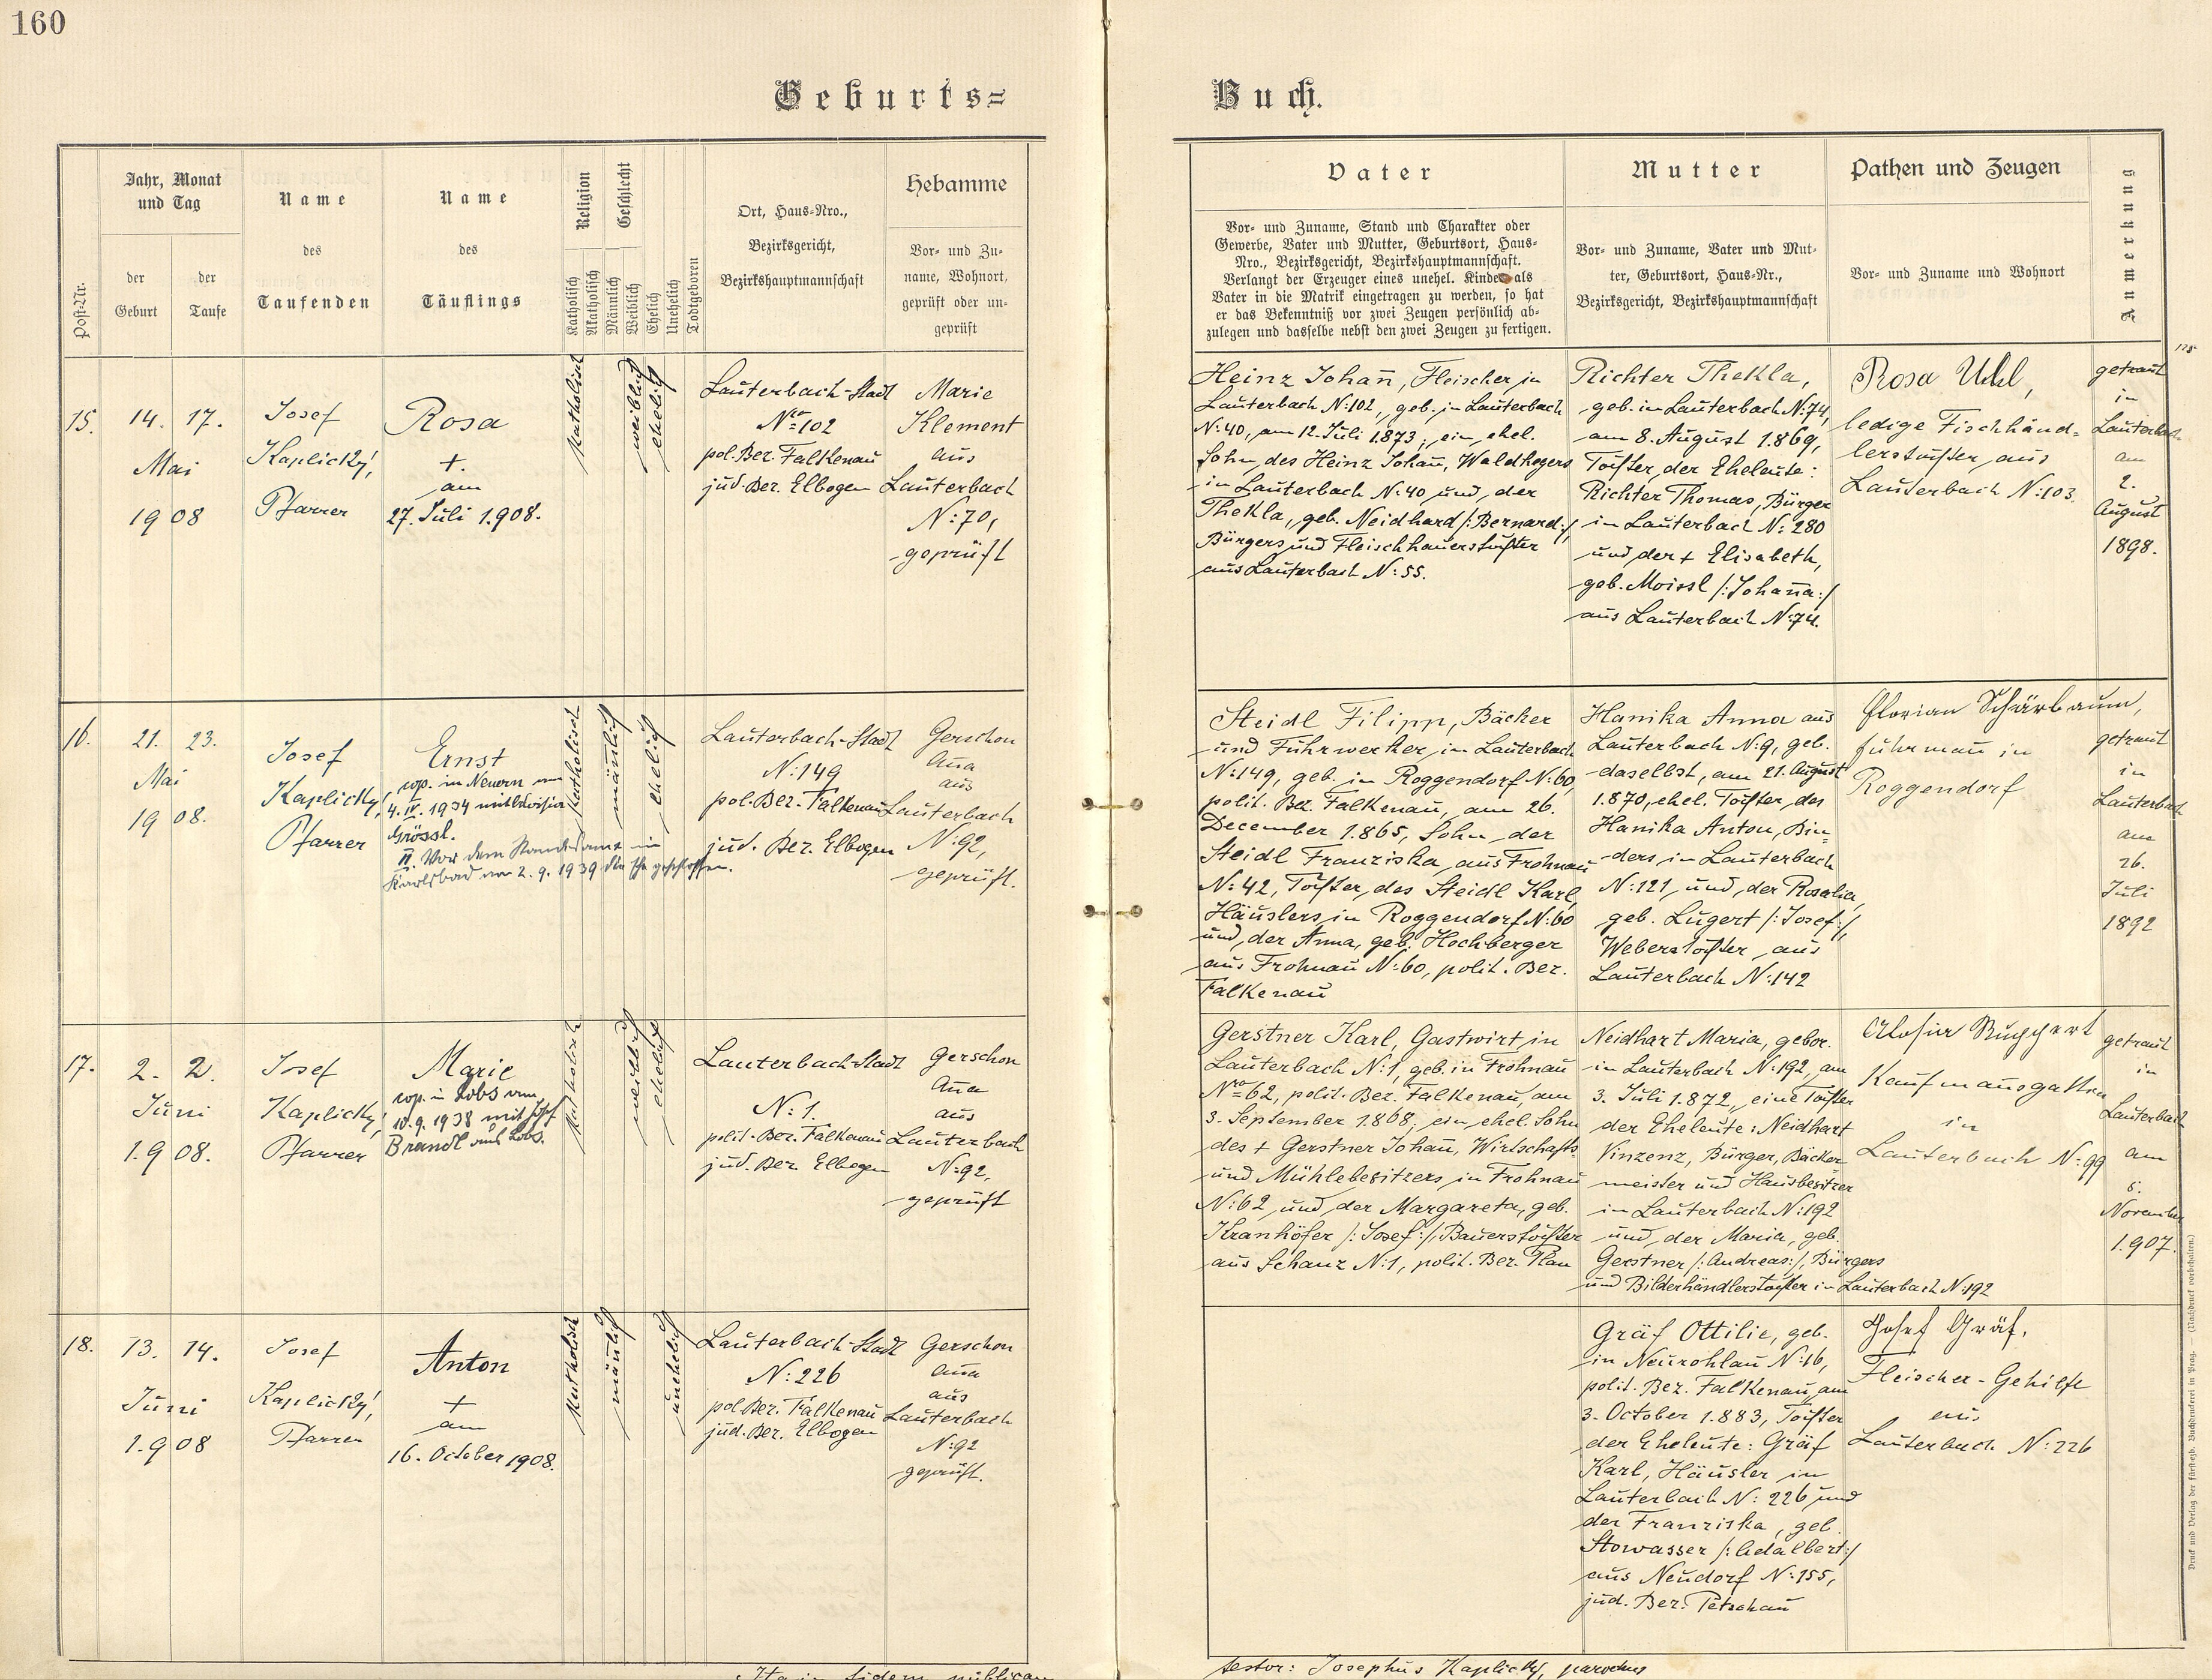 160
Geburts=
Buch.
Post-Nr.
Jahr, Monat
und Tag
der
Geburt
der
Taufe
Name
des
Taufenden
Name
des
Täuflings
Religion
Katholisch
Akatholisch
Geschlecht
Männlich
Weiblich
Ehelich
Unehelich
Todtgeboren
Ort, Haus-Nro.,
Bezirksgericht,
Bezirkshauptmannschaft
Hebamme
Vor- und Zu-
name, Wohnort,
geprüft oder un-
geprüft
Vater
Vor- und Zuname, Stand und Charakter oder
Gewerbe, Vater und Mutter, Geburtsort, Haus-
Nro., Bezirksgericht, Bezirkshauptmannschaft.
Verlangt der Erzeuger eines unehel. Kindes als
Vater in die Matrik eingetragen zu werden, so hat
er das Bekenntniß vor zwei Zeugen persönlich ab-
zulegen und dasselbe nebst den zwei Zeugen zu fertigen.
Mutter
Vor- und Zuname, Vater und Mut-
ter, Geburtsort, Haus-Nr.,
Bezirksgericht, Bezirkshauptmannschaft
Pathen und Zeugen
Vor- und Zuname und Wohnort
Anmerkung
15.
14. 17.
Mai
1908
Josef
Kaplický,
Pfarrer
Rosa
+.
am
27. Juli 1.908.
katholisch
weiblich
ehelich
Lauterbach-Stadt
Nro 102
pol. Bez. Falkenau
jud. Bez. Elbogen
Marie
Klement
aus
Lauterbach
N: 70,
geprüft
Heinz Johañ, Fleischer in
Lauterbach N: 102, geb. in Lauterbach
N: 40, am 12. Juli 1.873, ein ehel.
Sohn des Heinz Johañ, Waldhegers
in Lauterbach N: 40 und der
Thekla, geb. Neidhard /: Bernard :/,
Bürgers und Fleischhauerstochter
aus Lauterbach N: 55.
Richter Thekla,
geb. in Lauterbach N: 74,
am 8. August 1.869,
Tochter der Eheleute:
Richter Thomas, Bürger
in Lauterbach N: 280
und der + Elisabeth,
geb. Moissl /: Johaña :/
aus Lauterbach N: 74.
Rosa Uhl,
ledige Fischhänd-
lerstochter aus
Lauterbach N: 103.
getraut
in
Lauterbach
am
2.
August
1898.
16.
21. 23.
Mai
1908.
Josef
Kaplický,
Pfarrer
Ernst
cop. in Neuern am
4. IV. 1934 mit
Grössl.
II. Vor dem Standesamt in
Karlsbad am 2. 9. 1939 die Ehe geschlossen.
katholisch
mäñlich
ehelich
Lauterbach-Stadt
N: 149
pol. Bez. Falkenau
jud. Bez. Elbogen
Gerschon
Aña
aus
Lauterbach
N: 92,
geprüft.
Steidl Filipp, Bäcker
und Fuhrwerker in Lauterbach
N: 149, geb. in Roggendorf N: 60,
polit. Bez. Falkenau, am 26.
December 1.865, Sohn der
Steidl Franziska aus Frohnau
N: 42, Tochter des Steidl Karl,
Häuslers in Roggendorf N: 60
und der Anna, geb. Hochberger
aus Frohnau N: 60, polit. Bez.
Falkenau
Hanika Anna aus
Lauterbach N: 9, geb.
daselbst, am 21. August
1.870, ehel. Tochter des
Hanika Anton, Bin-
ders in Lauterbach
N: 121 und der Rosalia,
geb. Lugert /: Josef :/,
Weberstochter aus
Lauterbach N: 142
Florian Schärbaum,
Fuhrmañ in
Roggendorf
getraut
in
Lauterbach
am
26.
Juli
1892
17.
2. 2.
Juni
1.908.
Josef
Kaplický,
Pfarrer
Marie
cop. in Lobs am
10. 9. 1938 mit Josef
Brandl aus Lobs.
katholisch
weiblich
ehelich
Lauterbach-Stadt
N: 1.
polit. Bez. Falkenau
jud. Bez. Elbogen
Gerschon
Aña
aus
Lauterbach
N: 92,
geprüft
Gerstner Karl, Gastwirt in
Lauterbach N: 1, geb. in Frohnau
Nro 62, polit. Bez. Falkenau, am
3. September 1.868, ein ehel. Sohn
des + Gerstner Johañ, Wirtschafts-
und Mühlebesitzers in Frohnau
N: 62 und der Margareta, geb.
Kranhöfer /: Josef :/, Bauerstochter
aus Schanz N: 1, polit. Bez. Plan
Neidhart Maria, gebor.
in Lauterbach N: 192, am
3. Juli 1.872, eine Tochter
der Eheleute: Neidhart
Vinzenz, Bürger, Bäcker-
meister und Hausbesitzer
in Lauterbach N: 192
und der Maria, geb.
Gerstner /: Andreas :/, Bürgers
und Bilderhändlerstochter in Lauterbach N: 192
Aloisia Ruppert
Kaufmañsgattin
in
Lauterbach N: 99
getraut
in
Lauterbach
am
5.
November
1.907.
18.
13. 14.
Juni
1.908
Josef
Kaplický,
Pfarrer
Anton
+
am
16. October 1908.
katholisch
mäñlich
unehelich
Lauterbach-Stadt
N: 226
pol. Bez. Falkenau
jud. Bez. Elbogen
Gerschon
Aña
aus
Lauterbach
N: 92
geprüft.
Gräf Ottilie, geb.
in Neurohlau N: 16,
polit. Bez. Falkenau, am
3. October 1.883, Tochter
der Eheleute: Gräf
Karl, Häusler in
Lauterbach N: 226 und
der Franziska, geb.
Stowasser /: Adalbert :/
aus Neudorf N: 155,
jud. Bez. Petschau
Josef Gräf,
Fleischer-Gehilfe
aus
Lauterbach N: 226
Ita in fidem publicam
testor: Josephus Kaplický, parochus
Druck und Verlag der fürsterzb. Buchdruckerei in Prag. — (Nachdruck vorbehalten.)